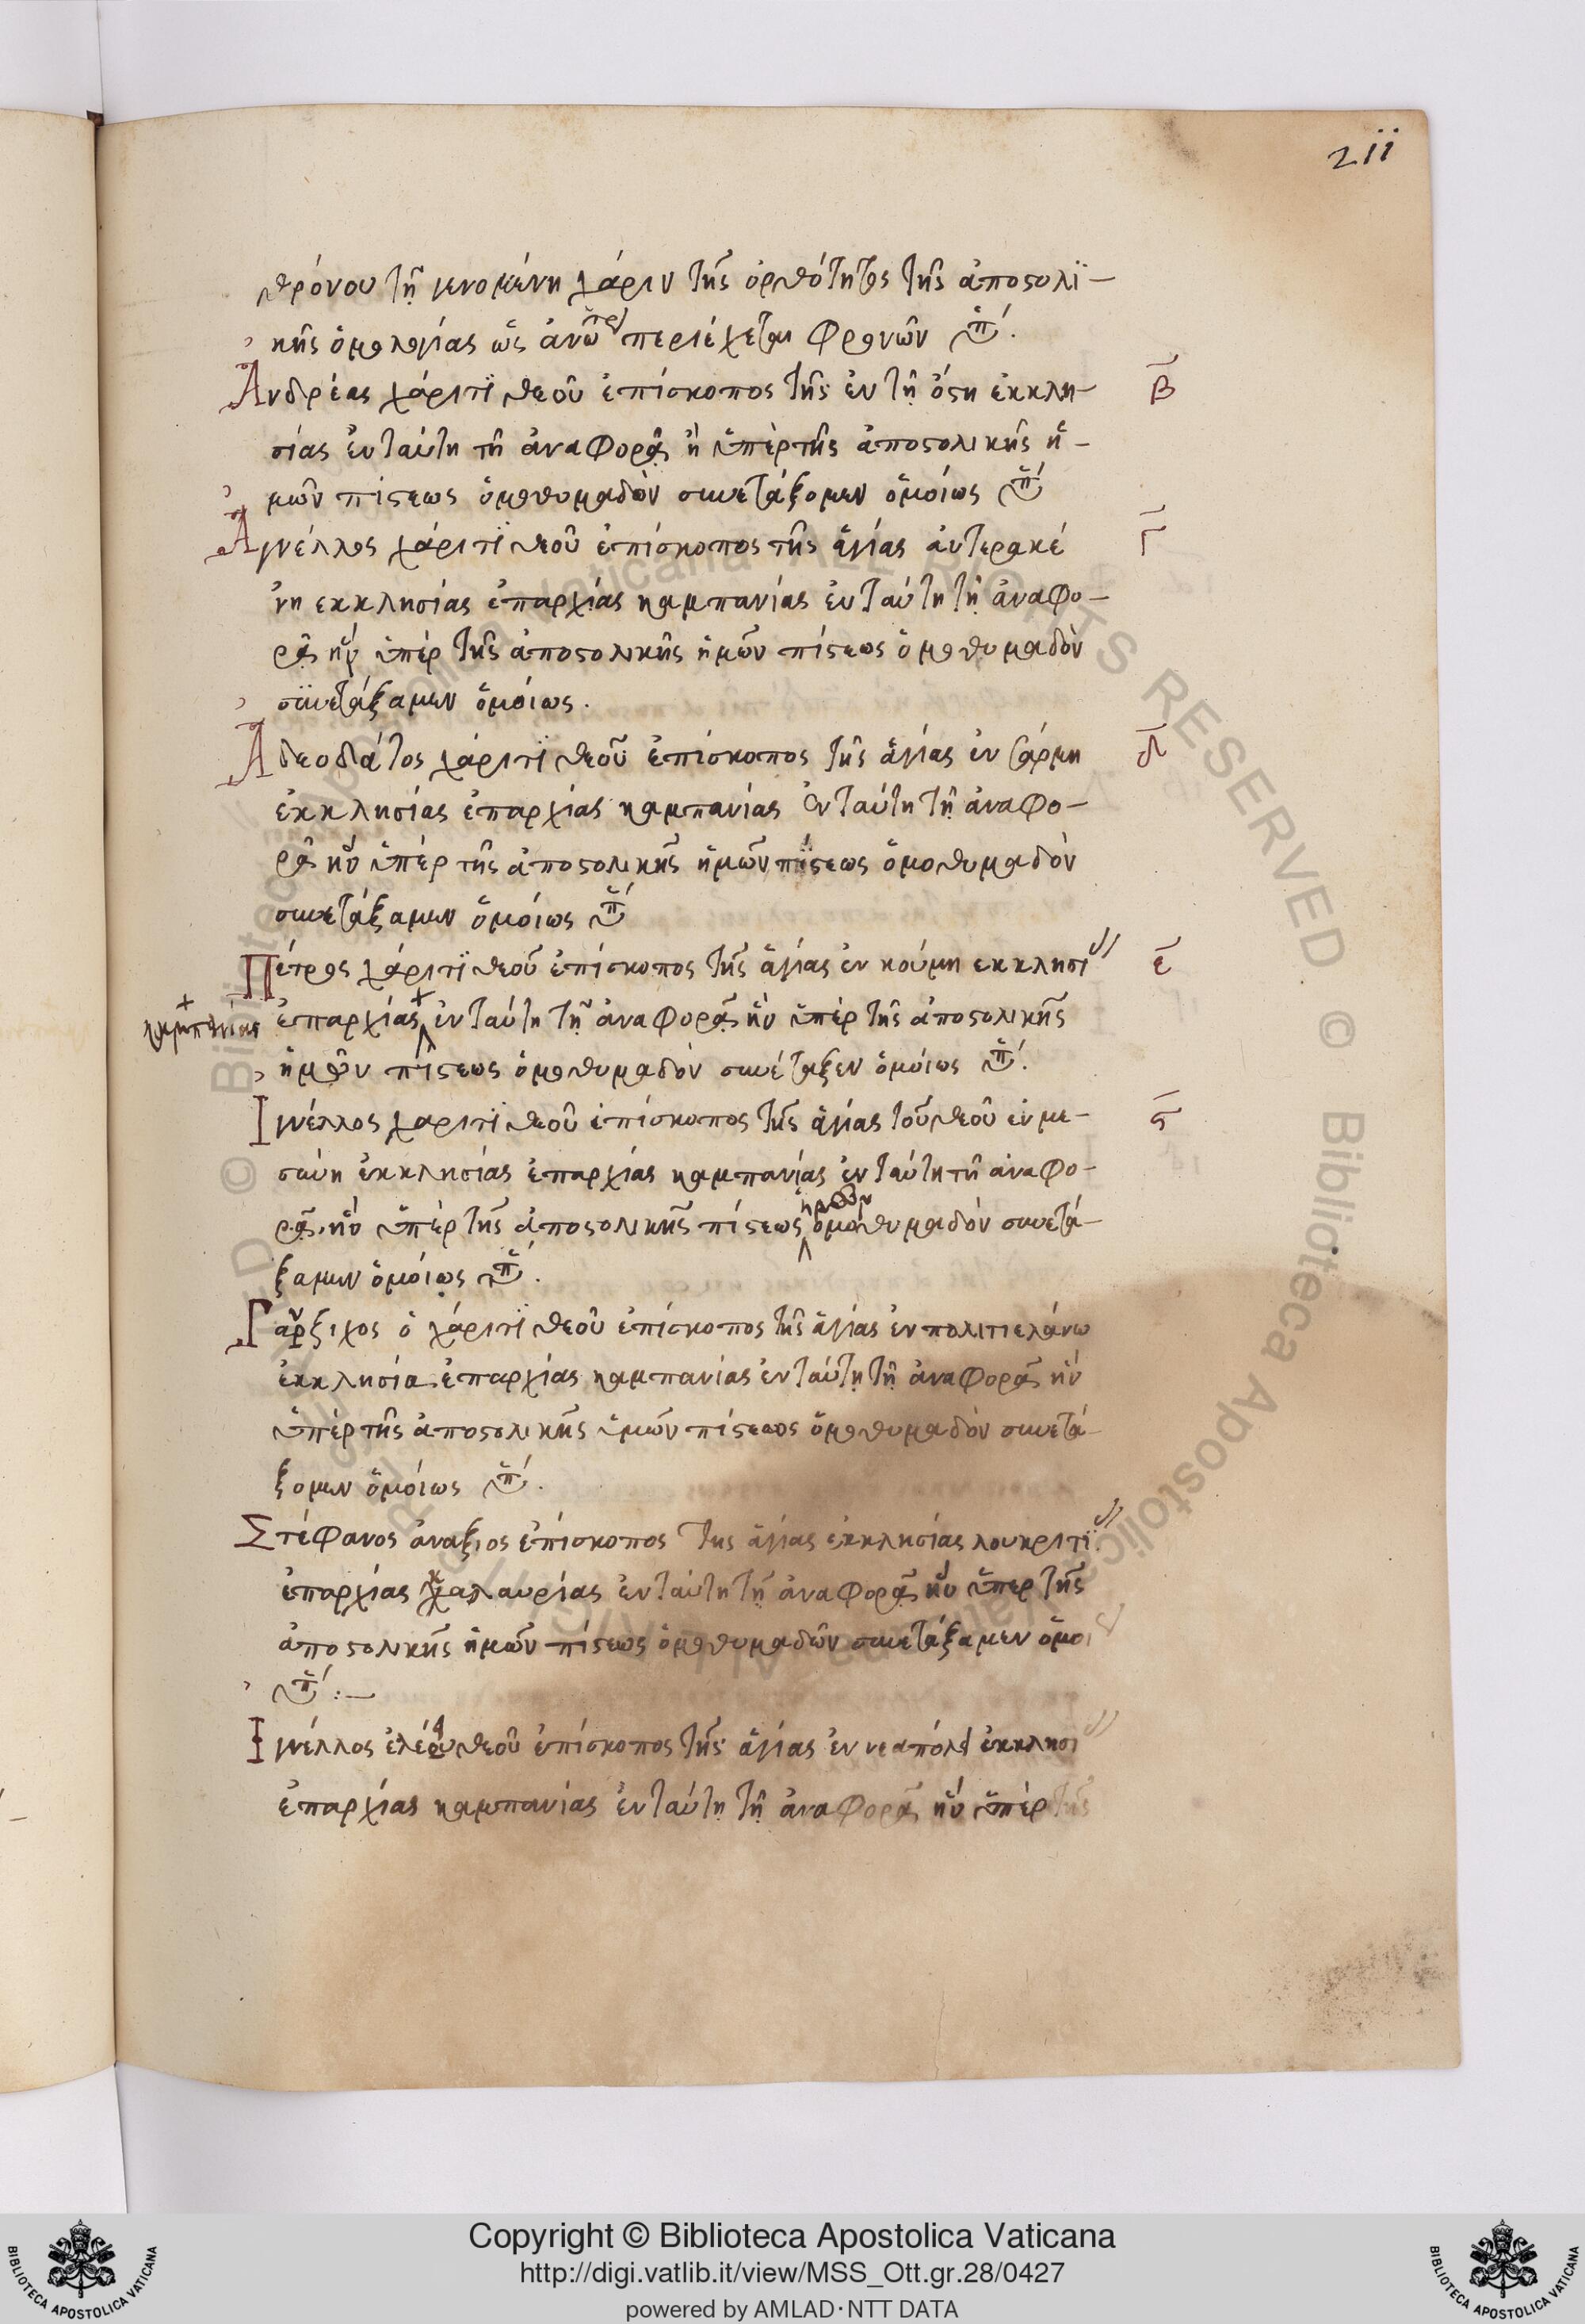 211
θρόνου τῇ γενομένη χάριν τῆς ὀρθότητος τῆς ἀποστολϊ-
κῆς ὁμολογίας ὡς ἀνω περιέχεται φρονῶν
Ἀνδρέας χάριτϊ θεοῦ ἐπίσκοπος τῆς ἐν τῇ ὄστη ἐκκλη- β
σίας ἐν ταύτη τῇ ἀναφορᾷ ἢ ὑπὲρ τῆς ἀποστολικῆς ἡ-
μῶν πίστεως ὁμοθυμαδὸν συνετάξομεν ὁμοίως
Ἀγνέλλος χάριτϊ θεοῦ ἐπίσκοπος τῆς ἁγίας ἀντερακέ γ
νη εκκλησίας ἐπαρχίας καμπανίας ἐν ταύτη τῇ ἀναφο-
ρᾷ ἣν ὑπὲρ τῆς ἀποστολικῆς ἡμῶν πίστεως ὁμοθυμαδὸν
συνετάξαμεν ὁμοίως.
Ἀδεοδάτος χάριτϊ θεοῦ ἐπίσκοπος τῆς ἁγίας ἐν τάρμη δ
ἐκκλησίας ἐπαρχίας καμπανίας ἐν ταύτη τῇ ἀναφο-
ρᾷ ἣν ὑπὲρ τῆς ἀποστολικῆς ἡμῶν πίστεως ὁμοθυμαδὸν
συνετάξαμεν ὁμοίως
Πέτρος χάριτϊ θεοῦ ἐπίσκοπος τῆς ἁγίας ἐν κούμη εκκλησι ε
καμπανίας ἐπαρχίας ἐν ταύτη τῇ ἀναφορᾷ ἣν ὑπὲρ τῆς ἀποστολικῆς
ἡμῶν πίστεως ὁμοθυμαδὸν συνέταξεν ὁμοίως
Ἰγνέλλος χαριτϊ θεοῦ ἐπίσκοπος τῆς ἁγίας τοῦ θεοῦ ἐν με- ϛ
σσύνη ἐκκλησίας ἐπαρχίας καμπανίας ἐν ταύτη τῇ ἀναφο-
ρᾷ ἣν ὑπὲρ τῆς ἀποστολικῆς πίστεως ἡμῶν ὁμοθυμαδὸν συνετά-
ξαμεν ὁμοίως
ὁ χάριτϊ θεοῦ ἐπίσκοπος τῆς ἁγίας ἐν πολιτιελάνω
ἐκκλησία ἐπαρχίας καμπανίας ἐν ταύτῃ τῇ ἀναφορᾷ ἣν
ὑπὲρ τῆς ἀποστολικῆς ὑμῶν πίστεως ὁμοθυμαδὸν συνετά-
ξομεν ὁμοίως
Στέφανος ἀναξιος ἐπίσκοπος της ἁγίας ἐκκλησίας λουκριτι
ἐπαρχίας καλαυρίας ἐν ταύτη τῇ ἀναφορᾷ ἣν ὑπερ τῆς
ἀποστολικῆς ἡμῶν πίστεως ὁμοθυμαδῶν συνετάξαμεν ὁμοι
Ἰγνέλλος ἐλέω θεοῦ ἐπίσκοπος τῆς ἁγίας ἐν νεαπόλει ἐκκλησι
ἐπαρχίας καμπανίας ἐν ταύτῃ τῇ ἀναφορᾷ ἣν ὑπὲρ τῆς
Copyright © Biblioteca Apostolica Vaticana
http://digi.vatlib.it/view/MSS_Ott.gr.28/0427
powered by AMLAD·NTT DATA
BIBLIOTECA APOSTOLICA VATICANA
BIBLIOTECA APOSTOLICA VATICANA